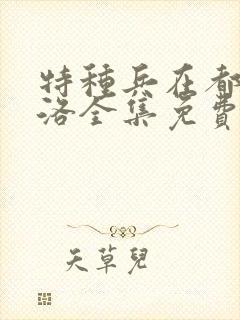 特種兵在都
洛全集免費
天草兒